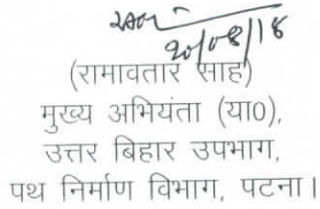 20/08/18
(रामावतार साह)
मुख्य अभियंता (या0),
उत्तर बिहार उपभाग,
पथ निर्माण विभाग, पटना।